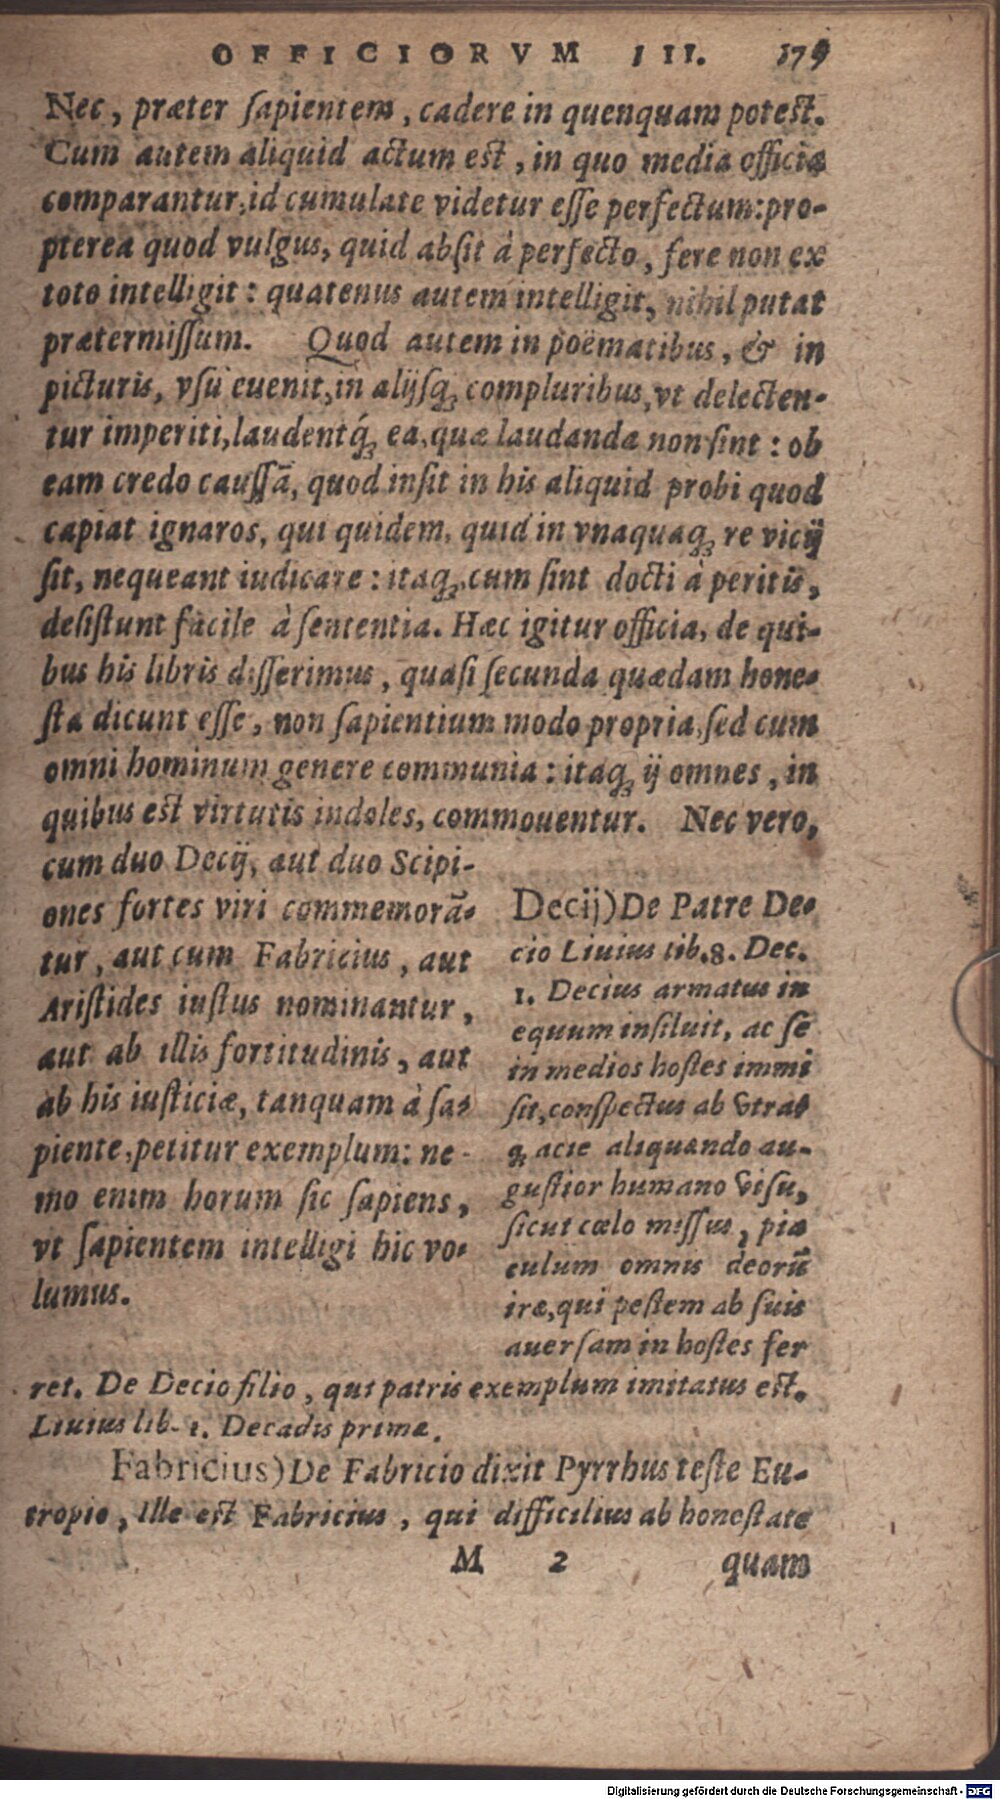 OFFICIORVM III. 179
Nec, præter ſapientem, cadere in quenquam poteſt.
Cum autem aliquid actum eſt, in quo media officia
comparantur, id cumulate videtur eſſe perfectum: pro-
pterea quod vulgus, quid abſit à perfecto, fere non ex
toto intelligit: quatenus autem intelligit, nihil putat
prætermiſſum. Quod autem in poëmatibus, & in
picturis, vſu euenit, in alijſq́ȝ compluribus, vt delecten-
tur imperiti, laudentq́ȝ ea, quæ laudanda non ſint: ob
eam credo cauſſã, quod inſit in his aliquid probi quod
capiat ignaros, qui quidem, quid in vnaquaqȝ re vicij
ſit, nequeant iudicare: itaqȝ cum ſint docti à peritis,
deſiſtunt facile à ſententia. Hæc igitur officia, de qui-
bus his libris diſſerimus, quaſi ſecunda quædam hone-
ſta dicunt eſſe, non ſapientium modo propria, ſed cum
omni hominum genere communia: itaqȝ ij omnes, in
quibus eſt virtutis indoles, commouentur. Nec vero,
cum duo Decij, aut duo Scipi-
ones fortes viri commemorã-
tur, aut cum Fabricius, aut
Ariſtides iuſtus nominantur,
aut ab illis fortitudinis, aut
ab his iuſticiæ, tanquam à ſa-
piente, petitur exemplum: ne-
mo enim horum ſic ſapiens,
vt ſapientem intelligi hic vo-
lumus.
Decij) De Patre De-
cio Liuius lib. 8. Dec.
1. Decius armatus in
equum inſiluit, ac ſe
in medios hoſtes immi
ſit, conſpectus ab vtra-
qȝ acie aliquando au-
guſtior humano viſu,
ſicut cœlo miſſus, pia
culum omnis deorũ
iræ, qui peſtem ab ſuis
auerſam in hoſtes fer
ret. De Decio filio, qui patris exemplum imitatus eſt.
Liuius lib. 1. Decadis primæ.
Fabricius) De Fabricio dixit Pyrrhus teſte Eu-
tropio, Ille eſt Fabricius, qui difficilius ab honeſtate
M 2 quam
Digitalisierung gefördert durch die Deutsche Forschungsgemeinschaft - DFG